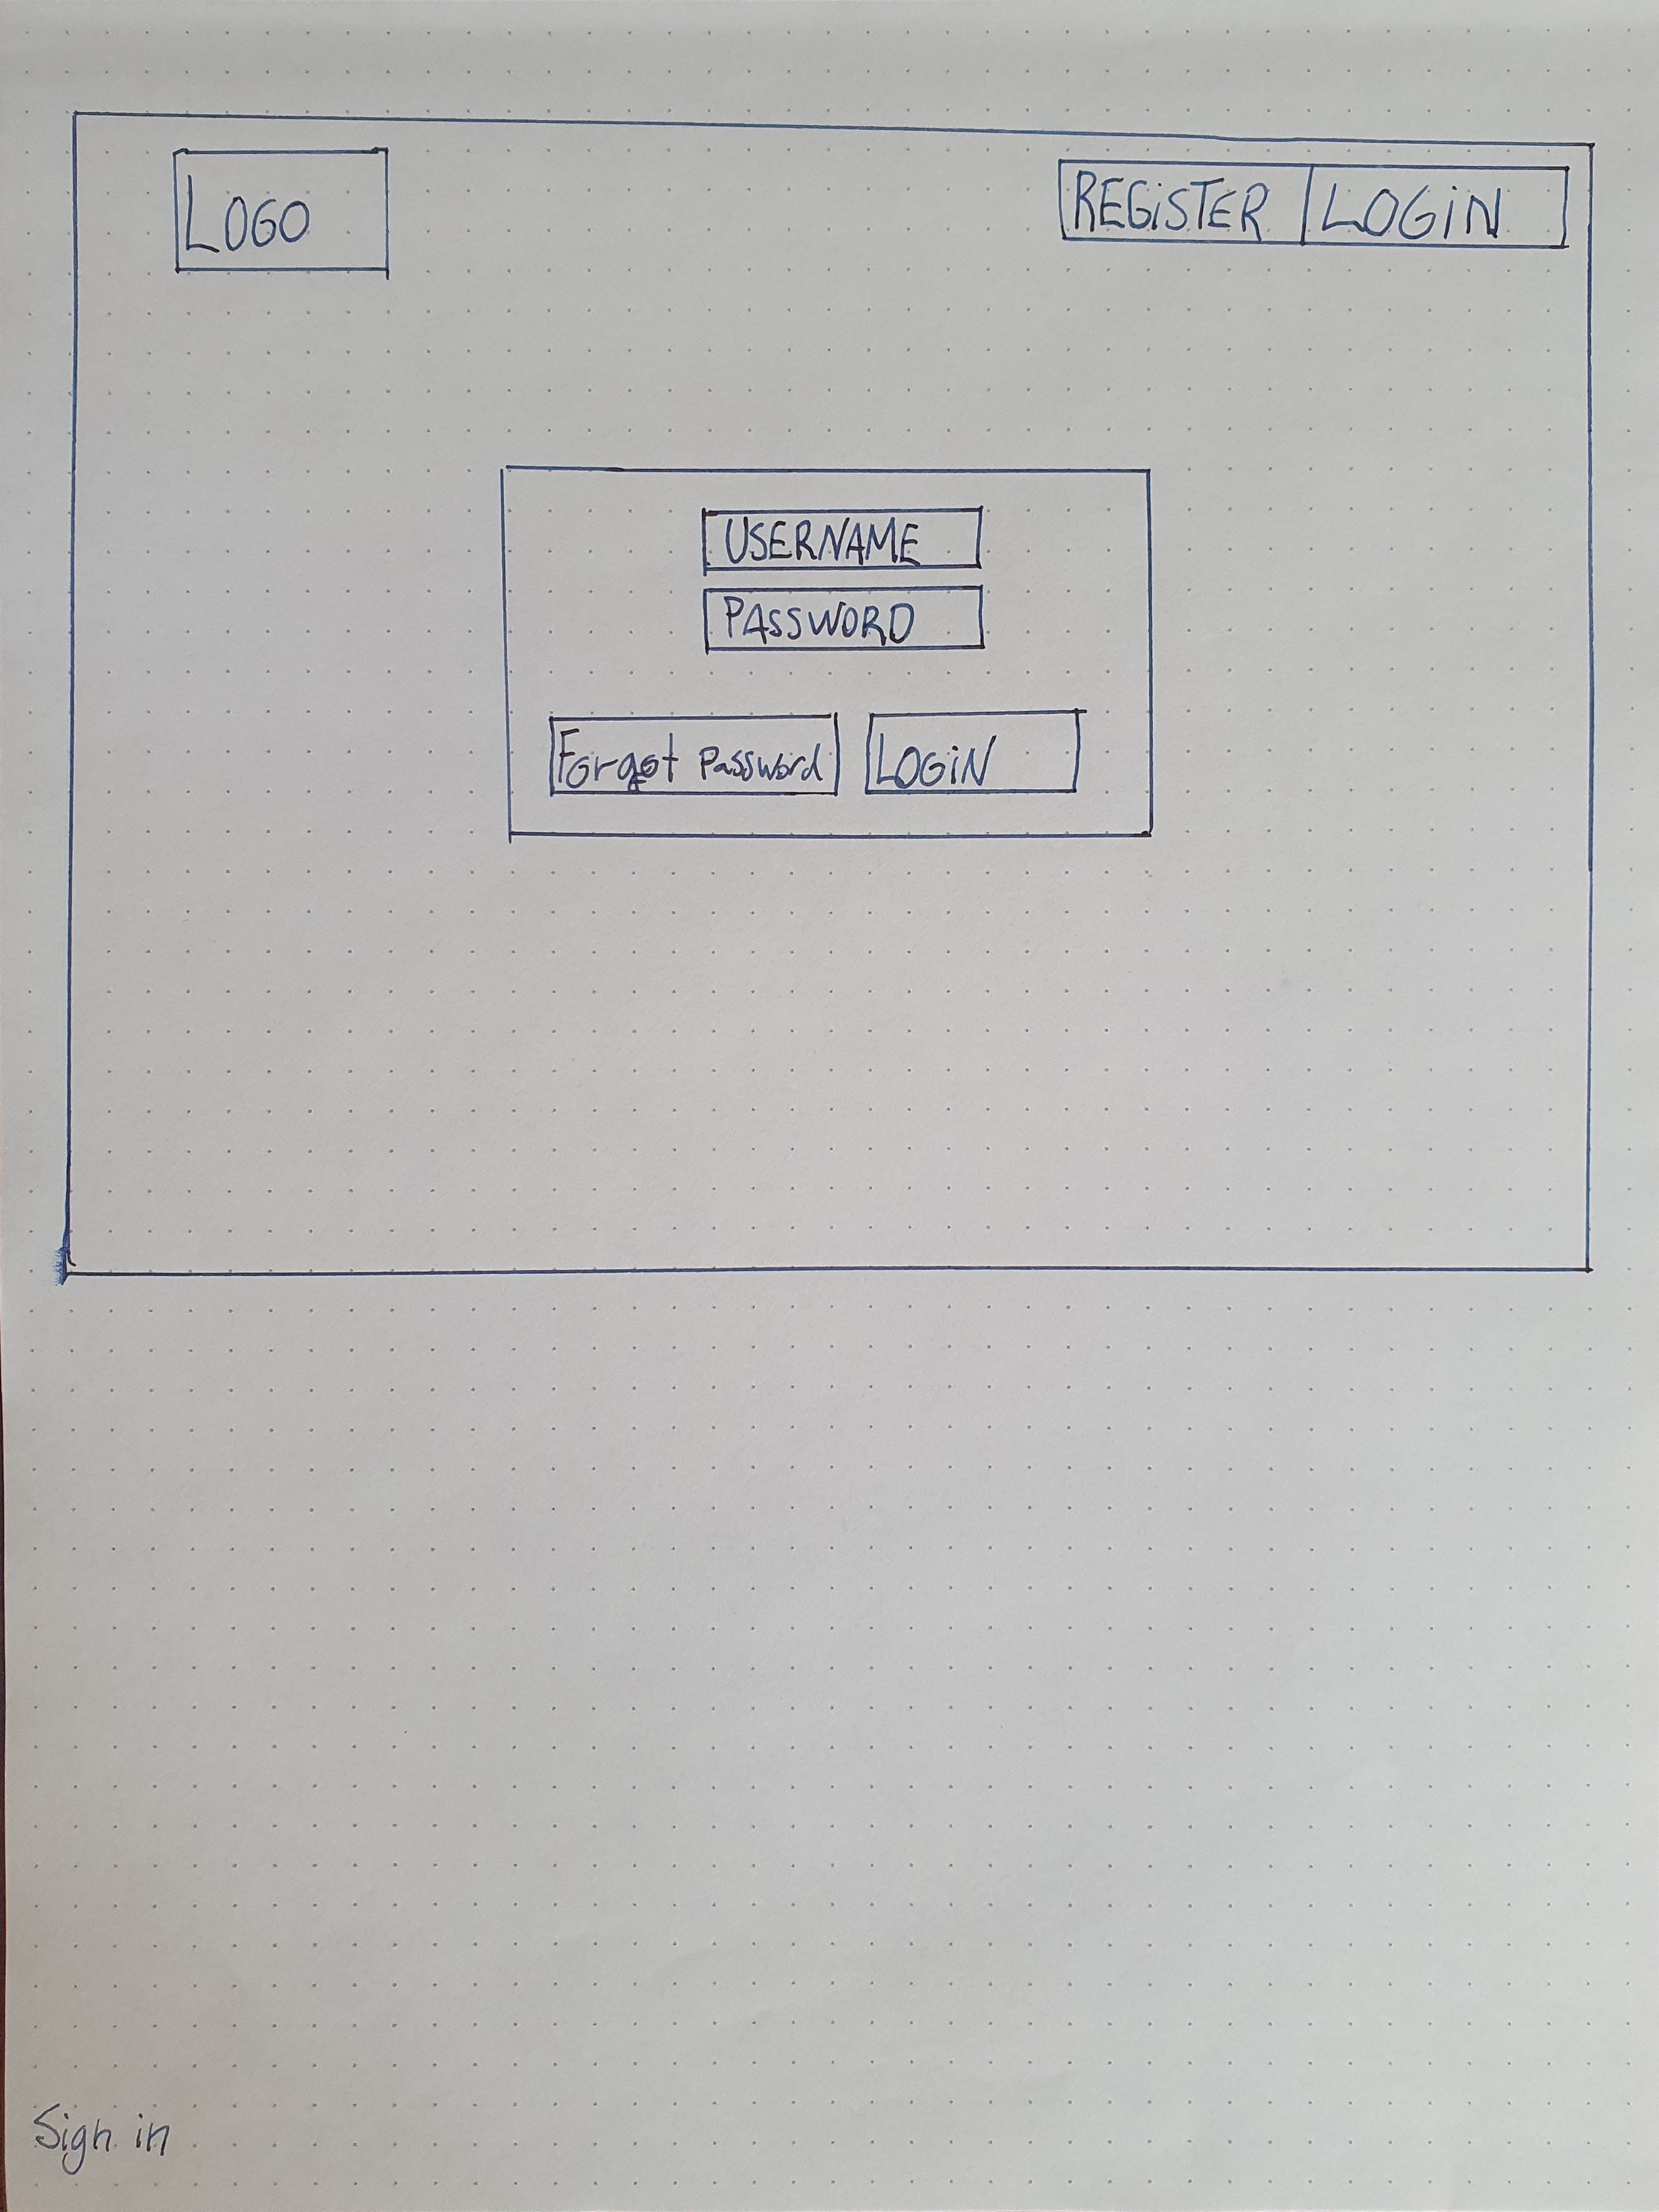 LOGO
REGiSTER LOGiN
USERNAME
PASSWORD
Forgot Password LOGiN
Sign in